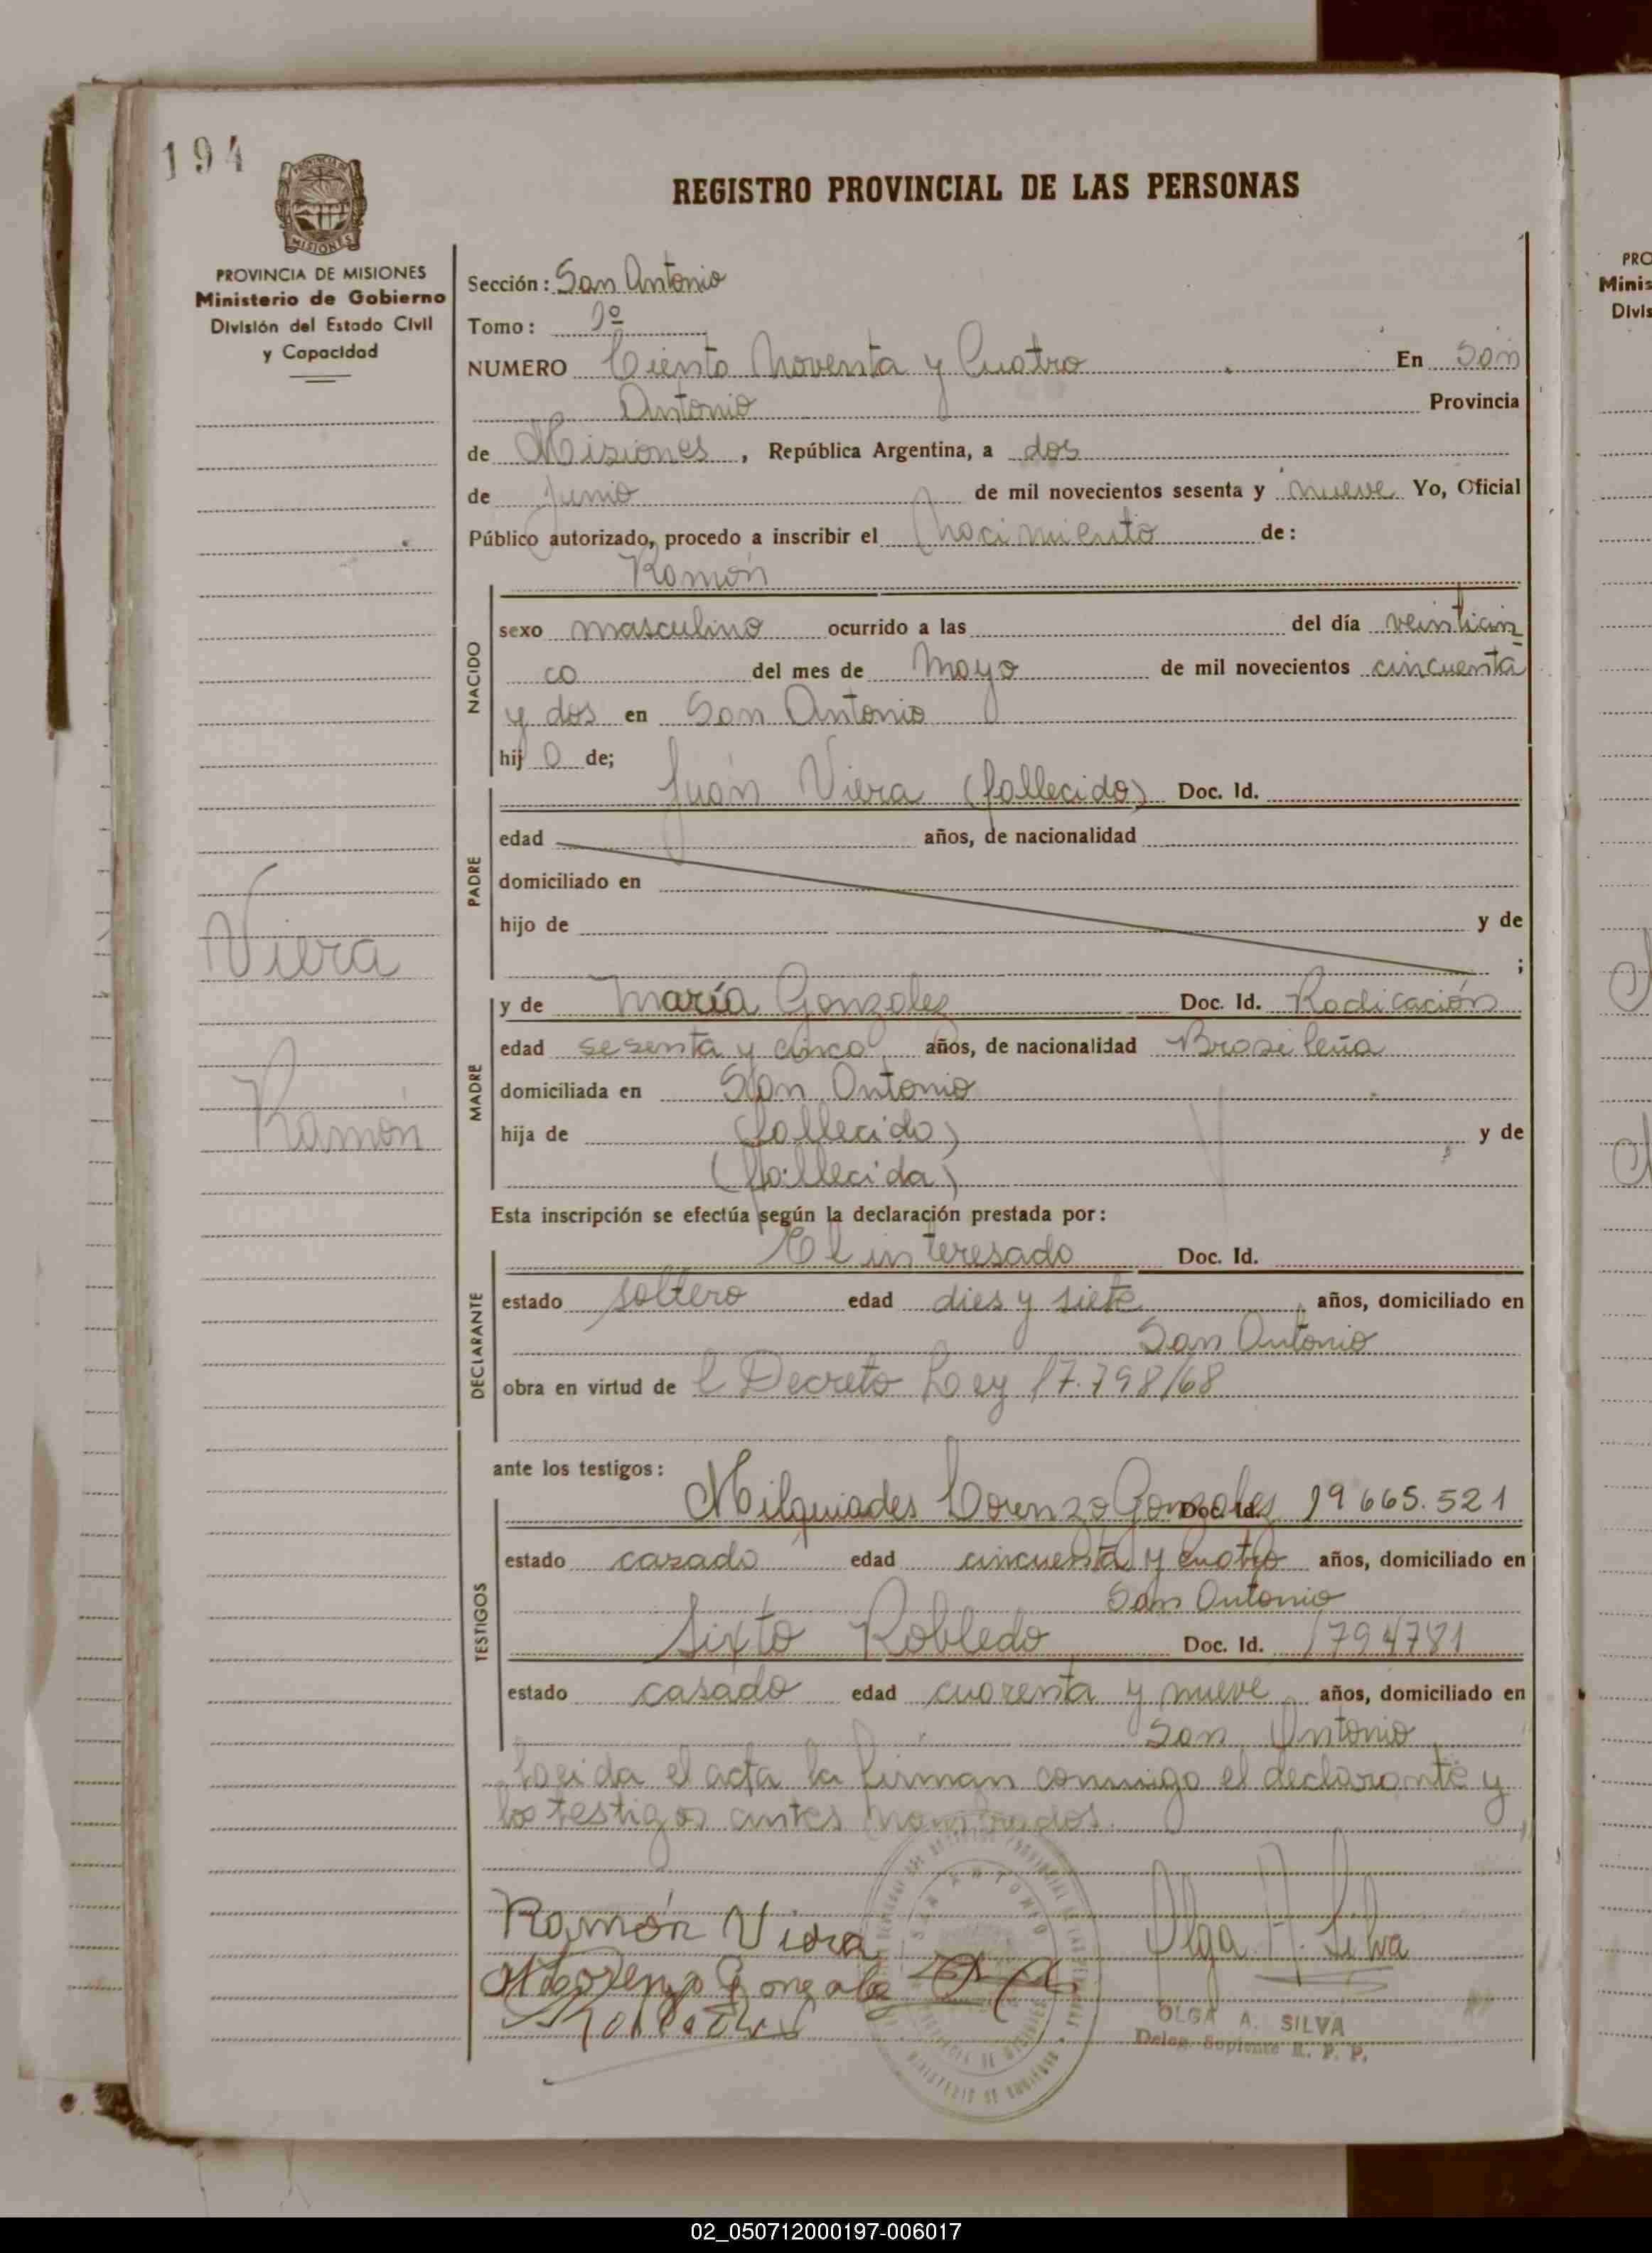 194
REGISTRO PROVINCIAL DE LAS PERSONAS
PROVINCIA DE MISIONES
Ministerio de Gobierno
División del Estado Civil
y Capacidad
Sección: San Antonio
Tomo: 1º
NUMERO Ciento Noventa y Cuatro En San
Antonio Provincia
de Misiones, República Argentina, a dos
de Junio de mil novecientos sesenta y nueve Yo, Oficial
Público autorizado, procedo a inscribir el Nacimiento de:
Ramón
NACIDO
sexo masculino ocurrido a las del día veinticin
co del mes de Mayo de mil novecientos cincuenta
y dos en San Antonio
hijo de;
PADRE
Juan Viera (fallecido) Doc. Id.
edad años, de nacionalidad
domiciliado en
hijo de y de
;
Viera
Ramón
MADRE
y de María Gonzalez Doc. Id. Radicación
edad sesenta y cinco años, de nacionalidad Brasileña
domiciliada en San Antonio
hija de (fallecido) y de
(fallecida)
Esta inscripción se efectúa según la declaración prestada por:
DECLARANTE
El interesado Doc. Id.
estado soltero edad dies y siete años, domiciliado en
San Antonio
obra en virtud de l Decreto Ley 17.798/68
ante los testigos:
TESTIGOS
Milquiades Lorenzo Gonzalez Doc. Id. 19665.521
estado cazado edad cincuenta y cuatro años, domiciliado en
San Antonio
Sixto Robledo Doc. Id. 1794781
estado casado edad cuarenta y nueve años, domiciliado en
San Antonio
Leida el acta la firman conmigo el declarante y
los testigos antes nombrados.
Ramón Viera
M Lorenzo Gonzale
Olga A. Silva
OLGA A. SILVA
Deleg. Suplente R. P. P.
PRO
Minis
Divis
02_050712000197-006017